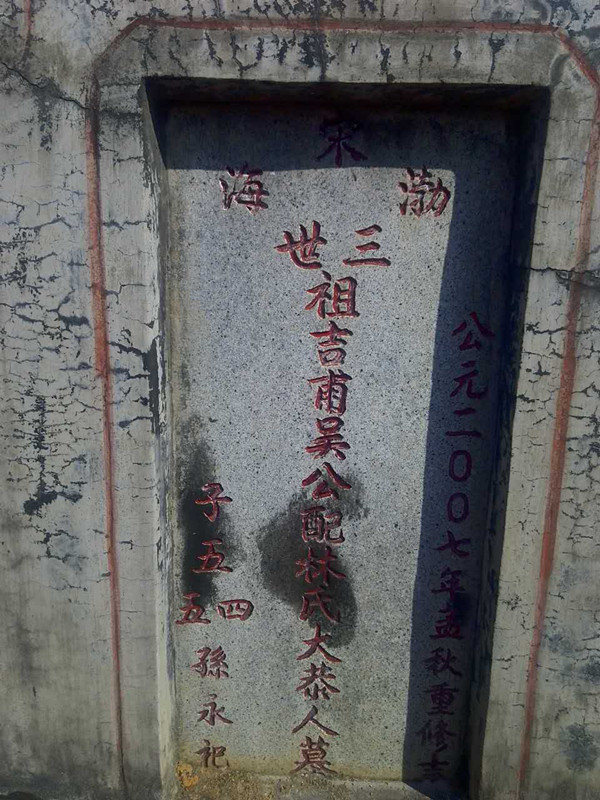 宋
渤海
公元二〇〇七年孟秋重修吉
三世
祖吉甫吴公配林氏大恭人墓
子五
四五
孫永祀